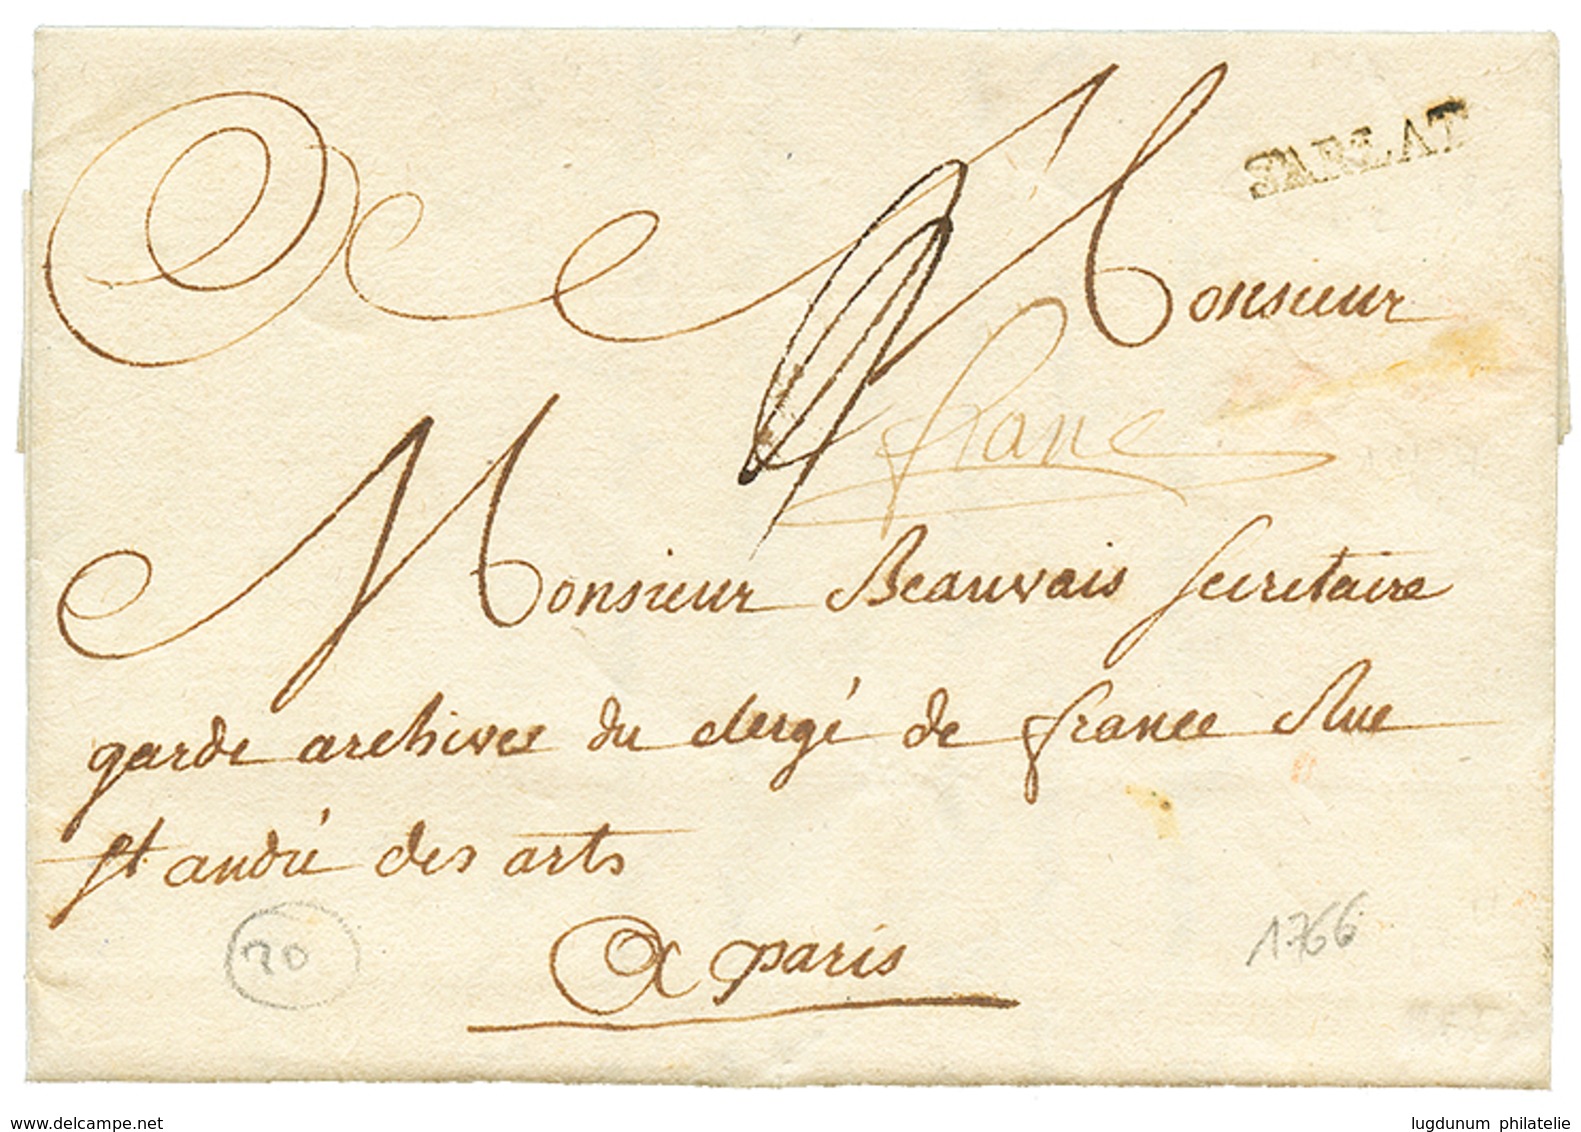 SARLAT
A Monsieur
franc
Monsieur Beauvais Secretaire
garde archives du clergé de france Rue
st andré des arts
A paris
20
1766
www.delcampe.net
lugdunum philatelie